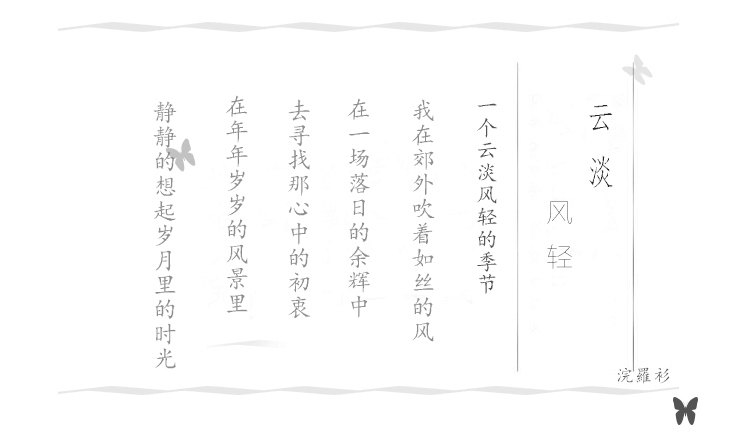 云淡
风轻
一个云淡风轻的季节
我在郊外吹着如丝的风
在一场落日的余辉中
去寻找那心中的初衷
在年年岁岁的风景里
静静的想起岁月里的时光
浣羅衫